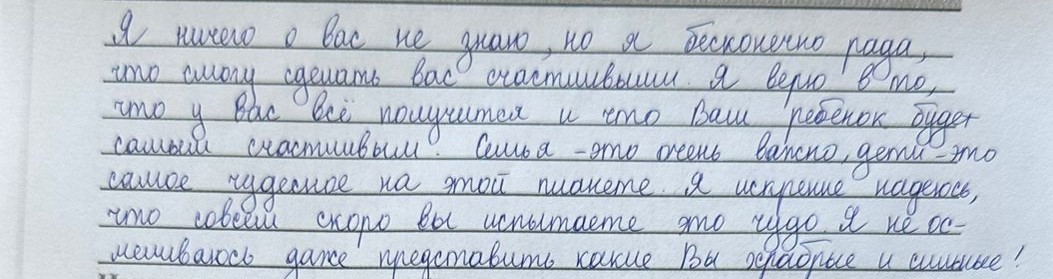 Я ничего о вас не знаю, но я бесконечно рада,
что смогу сделать вас счастливыми. Я верю в то,
что у вас всё получится и что Ваш ребёнок будет
самым счастливым. Семья - это очень важно, дети - это
самое чудесное на этой планете. Я искренне надеюсь,
что совсем скоро вы испытаете это чудо. Я не ос-
меливаюсь даже представить какие Вы храбрые и сильные!